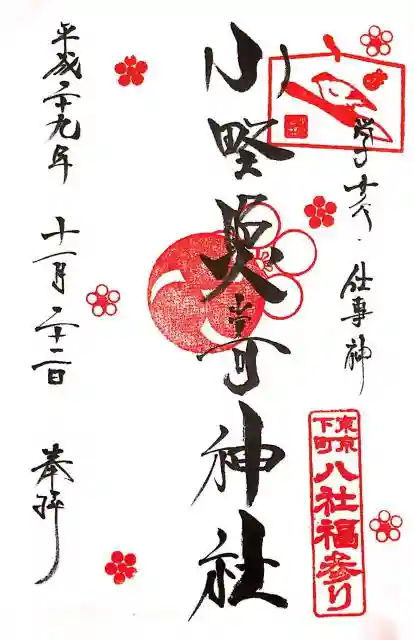 仕事神
東京
下町
八社福参り
小野照崎神社
平成二十九年 十一月二十二日 奉拝